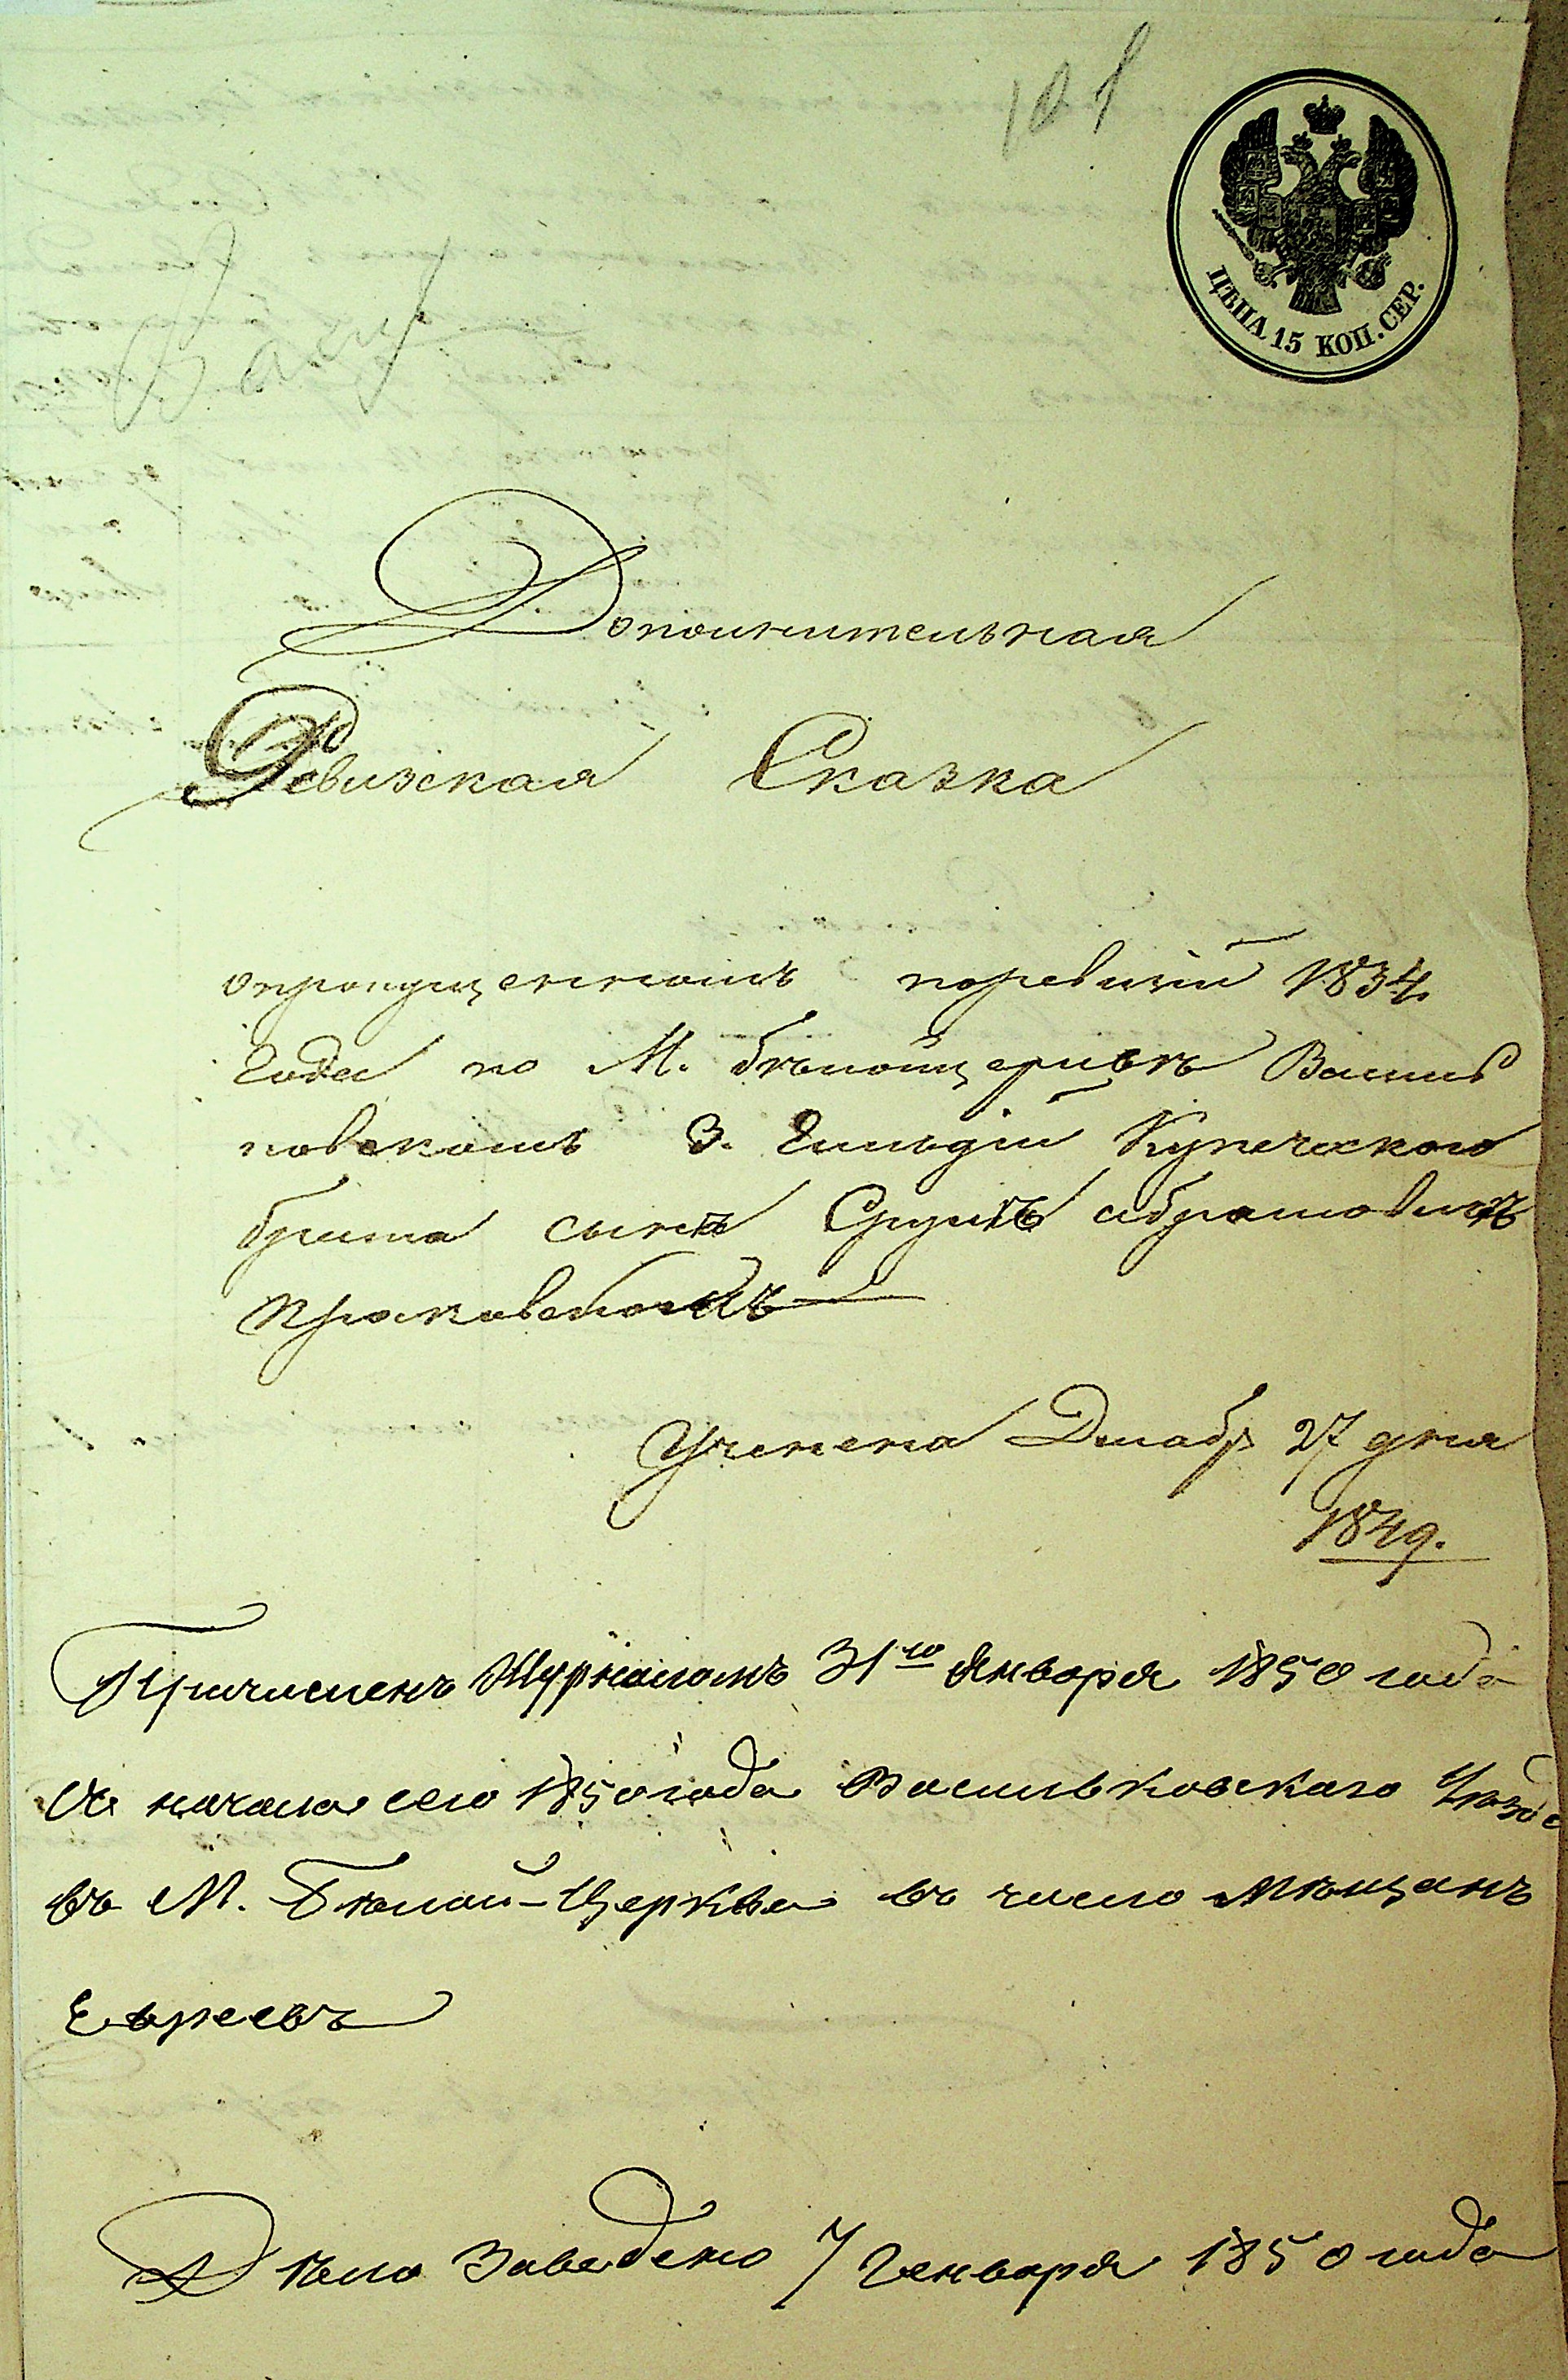 101
ЦѢНА 15 КОП. СЕР.
Дополнительная
Ревизская Сказка
опропущенномъ поревизіи 1834
года по М. бѣлойцерквѣ Василь
ковскомъ 3. Гильдіи Купеческого
брата сынѣ Срулѣ абрамовичѣ
Учинена Декабр 27 дня
1849.
Причисленъ Журналомъ 31го Января 1850 года
съ начала сего 1850 года Васильковскаго Уѣзда
въ М. Бѣлой-Церкви въ число Мѣщанъ
Евреевъ
Дѣло Заведено 7 Генваря 1850 года